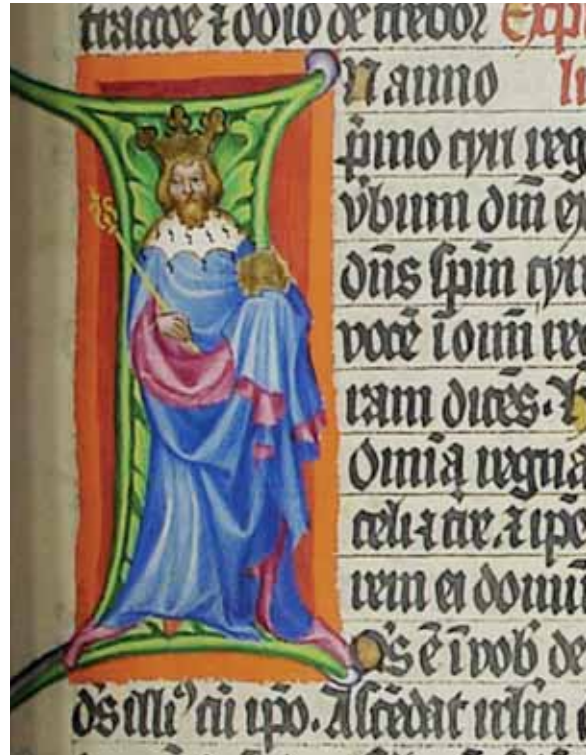 tractoe ⁊ odio de treboꝛ Expl
In anno In
pͥmo cyri reg
ūbum dm̄ ex
dn̄s spm̄ cyri
vocē ī om̄i reg
ram dicēs. h
Omnia regna
celi ⁊ t̄re. ⁊ ip̄e
rem ei domū
Q̄s ē ī vob̄ de
ds̄ illiꝰ cū ip̄o. Ascēdat irlm̄